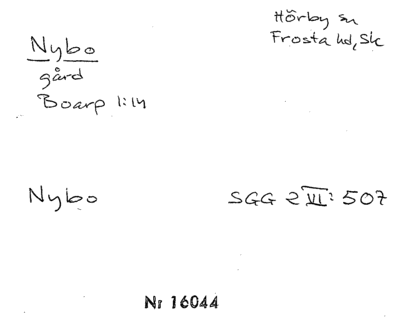 Hörby sn
Frosta hd, Sk
Nybo
gård
Boarp 1:14
Nybo
SGG 2 VI: 507
Nr 16044